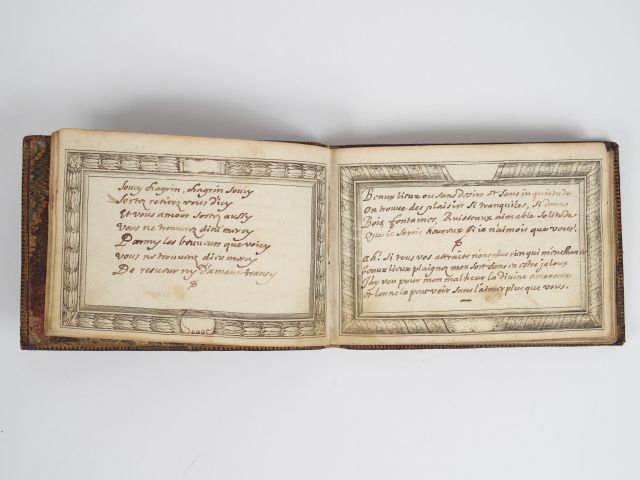 Soucy chagrin, chagrin soucy
Sortez retirez vous d'icy
Et vous amour sortez aussy
Vous ne trouverez dieu mercy
Parmy les beuveurs que voicy
Vous ne trouverez dieu mercy
De resveur ny d'amour transy
Beaux lieux ou sans desirs et sans inquietude
On trouve des plaisirs si tranquiles, si doux
Bois, fontaines, Ruisseaux aimable solitude
Que je serois heureux si je n'aimois que vous!
Ah! Si tous vos attraits n'ont plus rien qui m'enchante
Beaux lieux plaignez mon sort sans en estre jaloux
J'ay veu pour mon malheur la divine amarante
et l'on ne la peut voir sans l'aimer plus que vous.